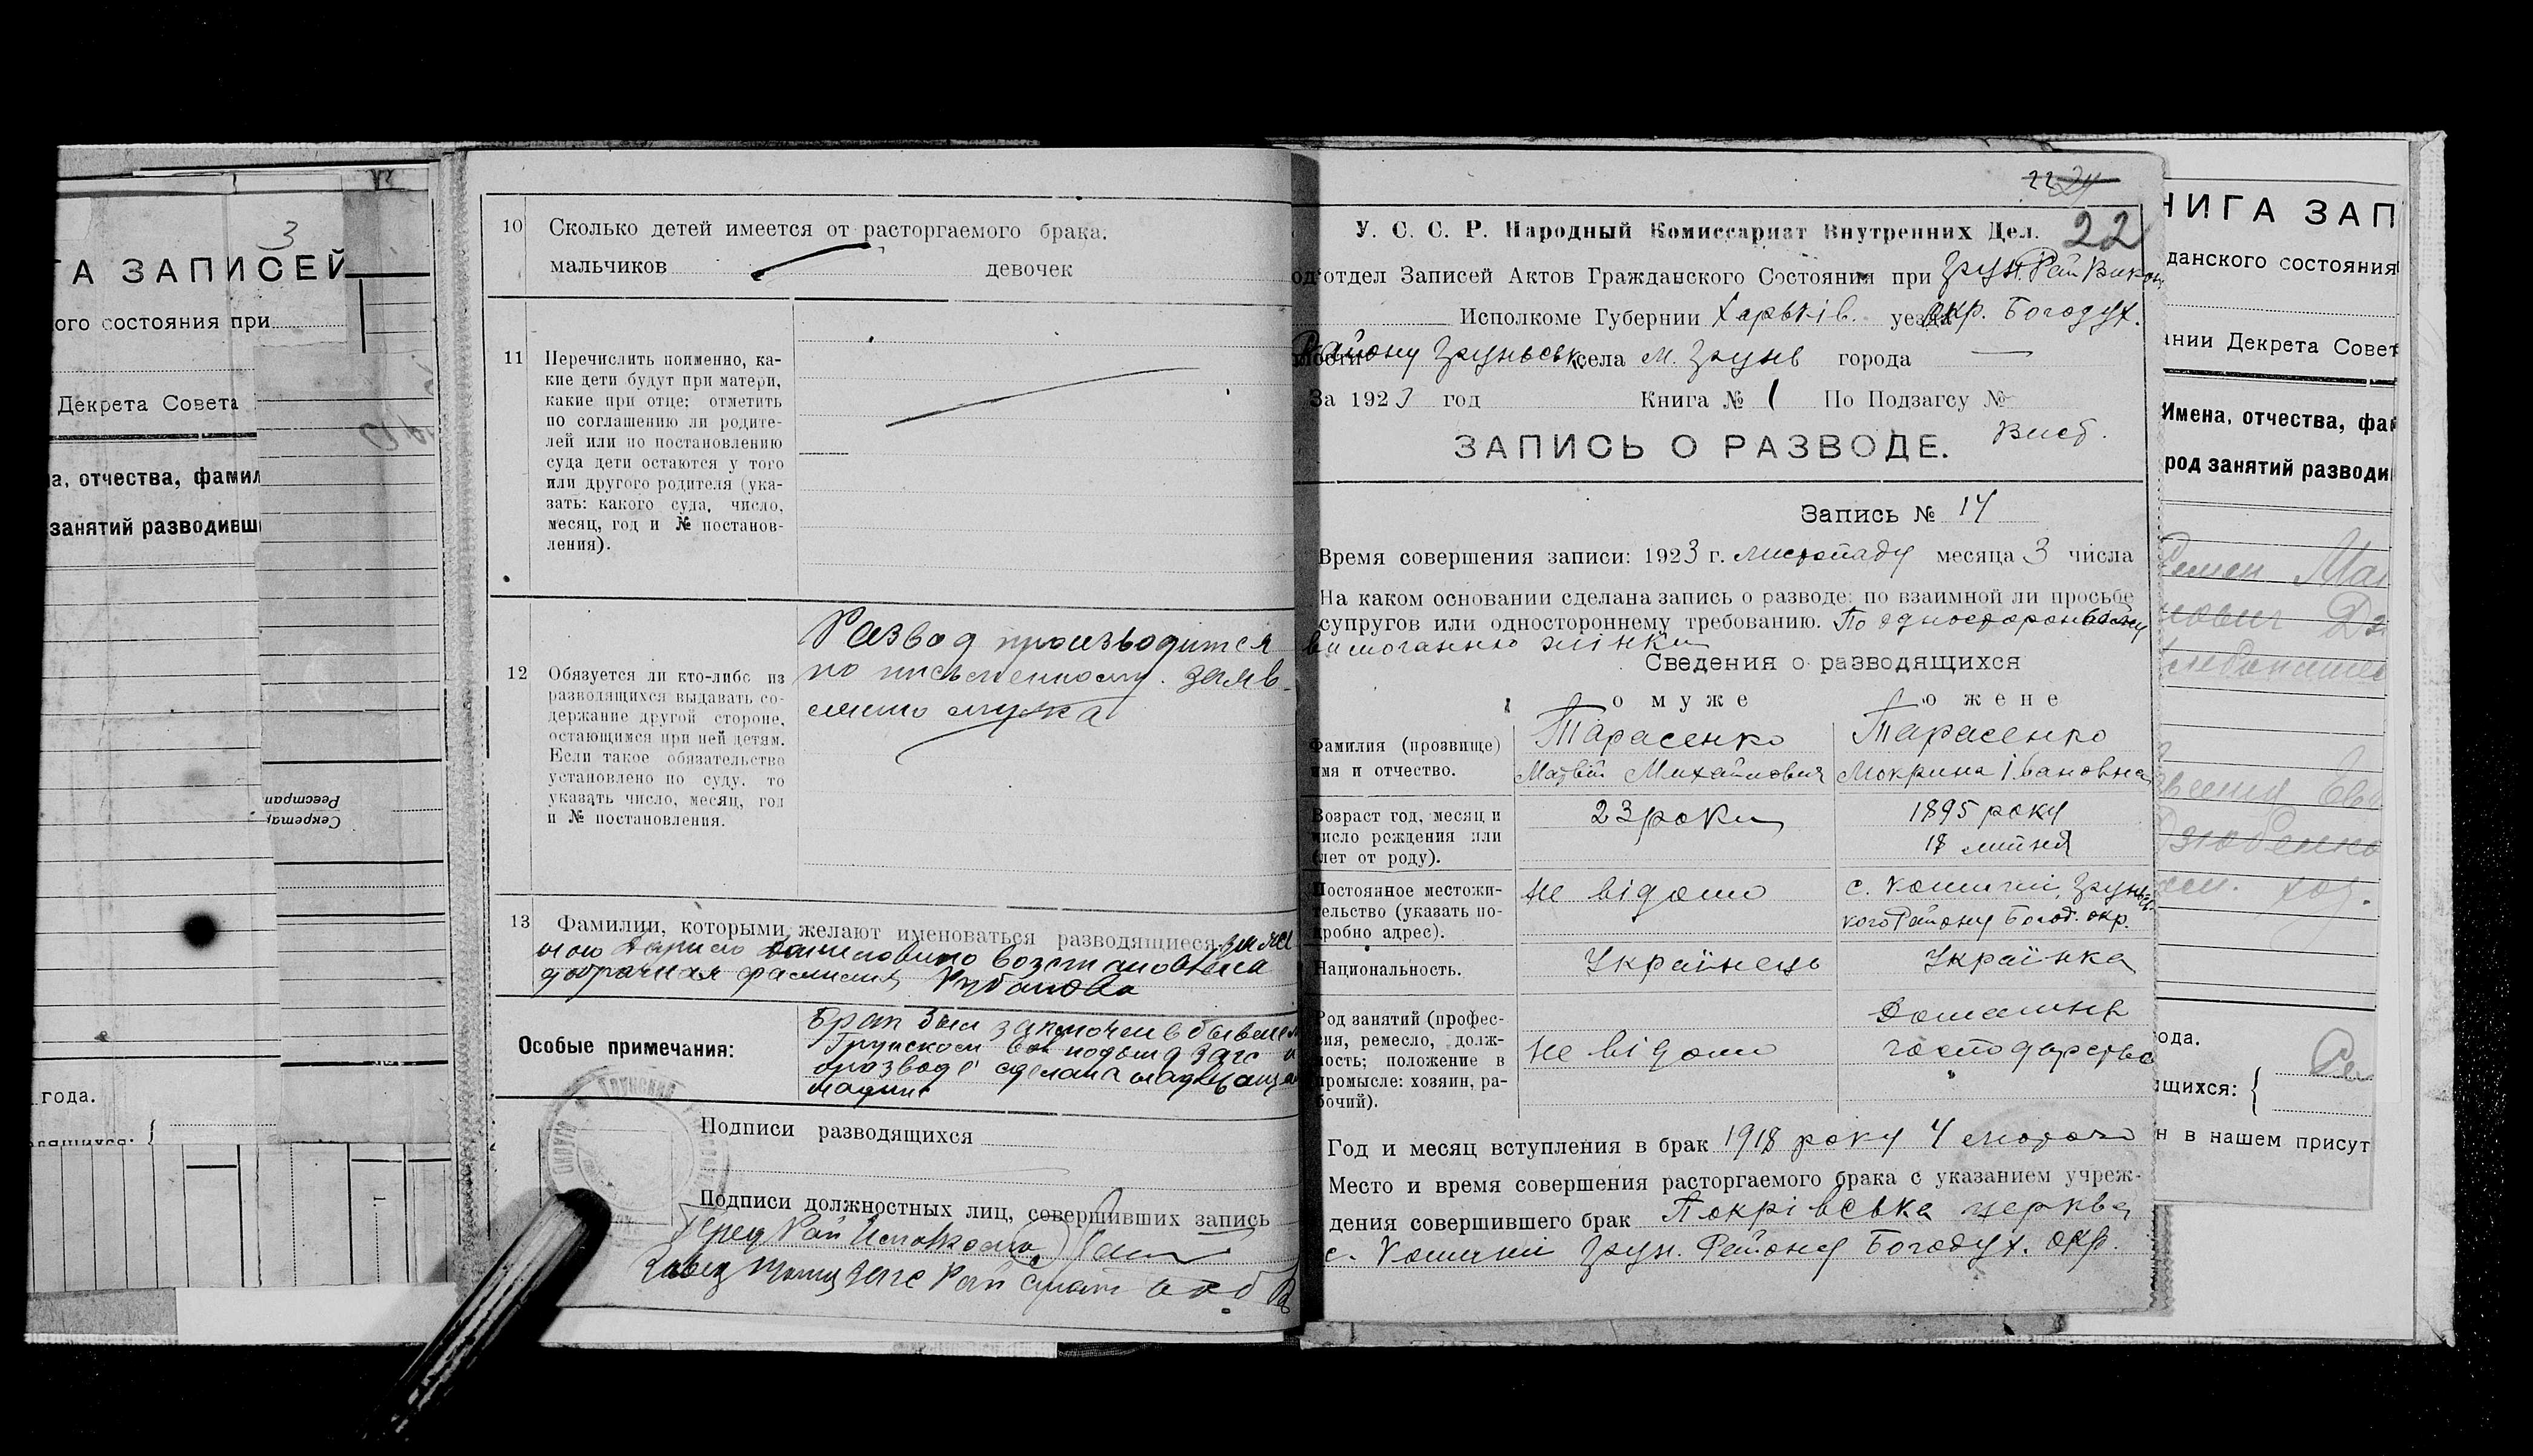 3
ГА ЗАПИСЕЙ
ого состояния при
Декрета Совета
а, отчества, фамил
занятий разводивш
Реестрат
Секретар
года.
10 Сколько детей имеется от расторгаемого брака.
мальчиков девочек
11 Перечислить поименно, ка-
кие дети будут при матери,
какие при отце: отметить
по соглашению ли родите-
лей или по постановлению
суда дети остаются у того
или другого родителя (ука-
зать: какого суда, число,
месяц, год и № постанов-
ления).
12 Обязуется ли кто-либо из
разводящихся выдавать со-
держание другой стороне,
остающимся при ней детям.
Если такое обязательство
установлено по суду, то
указать число, месяц, год
и № постановления.
Развод производится
по письменному заяв-
лению мужа
13 Фамилии, которыми желают именоваться разводящиеся.
добрачная фамилия
Особые примечания:
Брак был заключен в бывшем
Подписи разводящихся
Подписи должностных лиц, совершивших запись
22
У. С. С. Р. Народный Комиссариат Внутренних Дел.
од'отдел Записей Актов Гражданского Состояния при Грун. Рай Викон
Исполкоме Губернии Харьків. уезда окр. Богодух.
Району Груньськ. села м. Грунь города —
За 1923 год Книга № 1 По Подзагсу №
ЗАПИСЬ О РАЗВОДЕ.
Запись № 14
Время совершения записи: 1923 г. листопаду месяца 3 числа
На каком основании сделана запись о разводе: по взаимной ли просьбе
супругов или одностороннему требованию. По одностороньому
вимоганню жінки
Сведения о разводящихся
о муже о жене
Фамилия (прозвище)
имя и отчество.
Тарасенко
Матвій Михайлович
Тарасенко
Мокрина Івановна
Возраст год, месяц и
число рождения или
(лет от роду).
23 роки
1895 року
18 липня
Постоянное местожи-
тельство (указать по-
дробно адрес).
не відомо
с. Комиші Груньсь-
кого Району Богод. окр.
Национальность.
Українець
Українка
Род занятий (профес-
сия, ремесло, долж-
ность; положение в
промысле: хозяин, ра-
бочий).
не відомо
Домашнє
господарство
Год и месяц вступления в брак 1918 року 4 лютого
Место и время совершения расторгаемого брака с указанием учреж-
дения совершившего брак Покрівська церква
с. Комиші Грун. Району Богодух. окр.
НИГА ЗАП
данского состояния
ании Декрета Совет
Имена, отчества, фам
род занятий разводи
ода.
щихся:
н в нашем присут